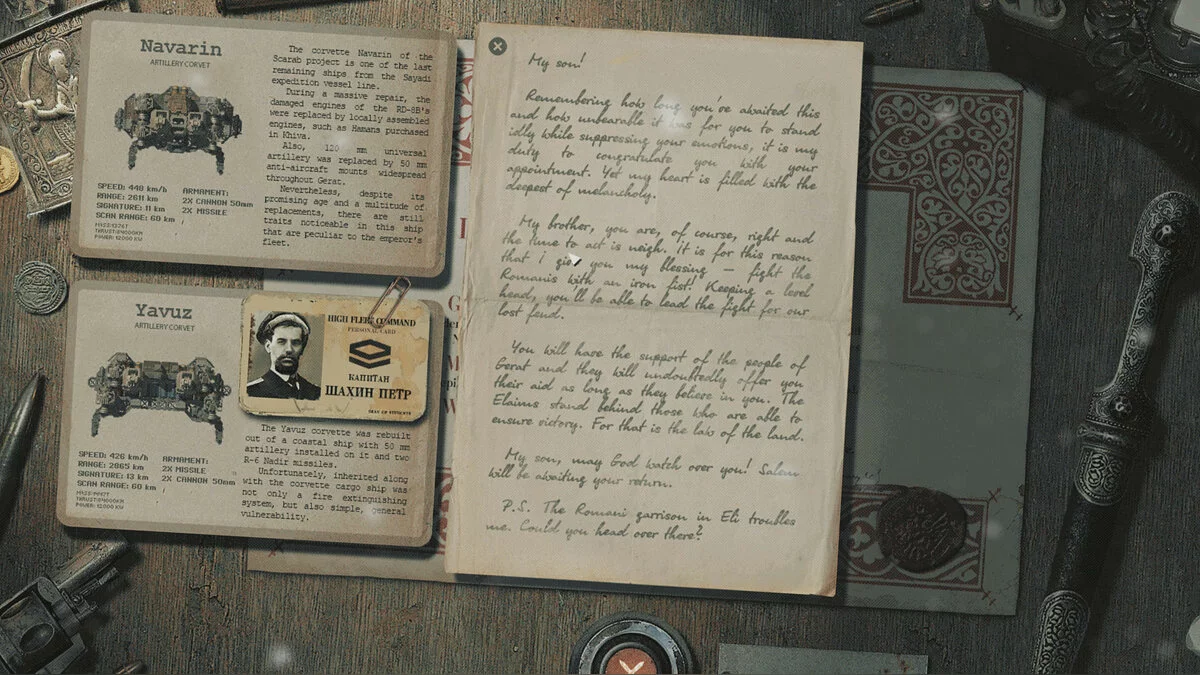 Navarin
ARTILLERY CORVET
SPEED: 448 km/h
RANGE: 2611 km
SIGNATURE: 11 km
SCAN RANGE: 60 km
MASS:13767
THRUST:84000KN
POWER: 12000 KW
ARMAMENT:
2X CANNON 50mm
2X MISSILE
The corvette Navarin of the
Scarab project is one of the last
remaining ships from the Sayadi
expedition vessel line.
During a massive repair, the
damaged engines of the RD-8B's
were replaced by locally assembled
engines, such as Hamans purchased
in Khiva.
Also, 120 mm universal
artillery was replaced by 50 mm
anti-aircraft mounts widespread
throughout Gerat.
Nevertheless, despite its
promising age and a multitude of
replacements, there are still
traits noticeable in this ship
that are peculiar to the emperor's
fleet.
Yavuz
ARTILLERY CORVET
SPEED: 426 km/h
RANGE: 2865 km
SIGNATURE: 13 km
SCAN RANGE: 60 km
POWER: 12000 KW
ARMAMENT:
2X MISSILE
2X CANNON 50mm
HIGH FLEET COMMAND
PERSONAL CARD
КАПИТАН
ШАХИН ПЕТР
The Yavuz corvette was rebuilt
out of a coastal ship with 50 mm
artillery installed on it and two
R-6 Nadir missiles.
Unfortunately, inherited along
with the corvette cargo ship was
not only a fire extinguishing
system, but also simple, general
vulnerability.
My son!
Remembering how long you've awaited this
and how unbearable it was for you to stand
idly while suppressing your emotions, it is my
duty to congratulate you with your
appointment. Yet my heart is filled with the
deepest of melancholy.
My brother, you are, of course, right and
the time to act is neigh. It is for this reason
that I give you my blessing — fight the
Romanis with an iron fist! Keeping a level
head, you'll be able to lead the fight for our
lost feud.
You will have the support of the people of
Gerat and they will undoubtedly offer you
their aid as long as they believe in you. The
Elaims stand behind those who are able to
ensure victory. For that is the law of the land.
My son, may God watch over you! Salem
will be awaiting your return.
P.S. The Romani garrison in Eli troubles
me. Could you head over there?